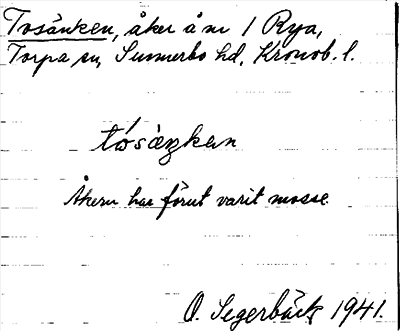 Tosänken, åker å nr 1 Rya,
Torpa sn, Sunnerbo hd, Kronob. l.
tósàŋkən
Åkern har förut varit mosse.
O. Segerbäck 1941.